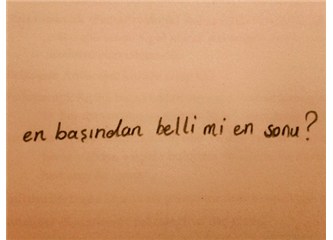 en başından belli mi en sonu?